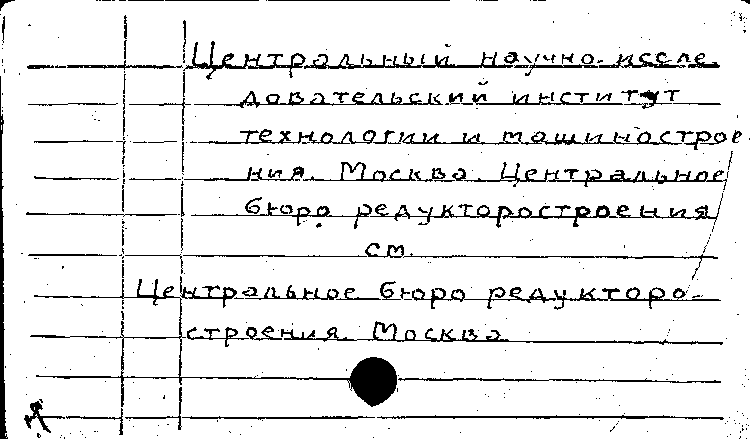 Центральный научно-иссле
довательский институт
технологии и машинострое
ния. Москва. Центральное
бюро редукторостроения
см.
Центральное бюро редукторо-
строения. Москва